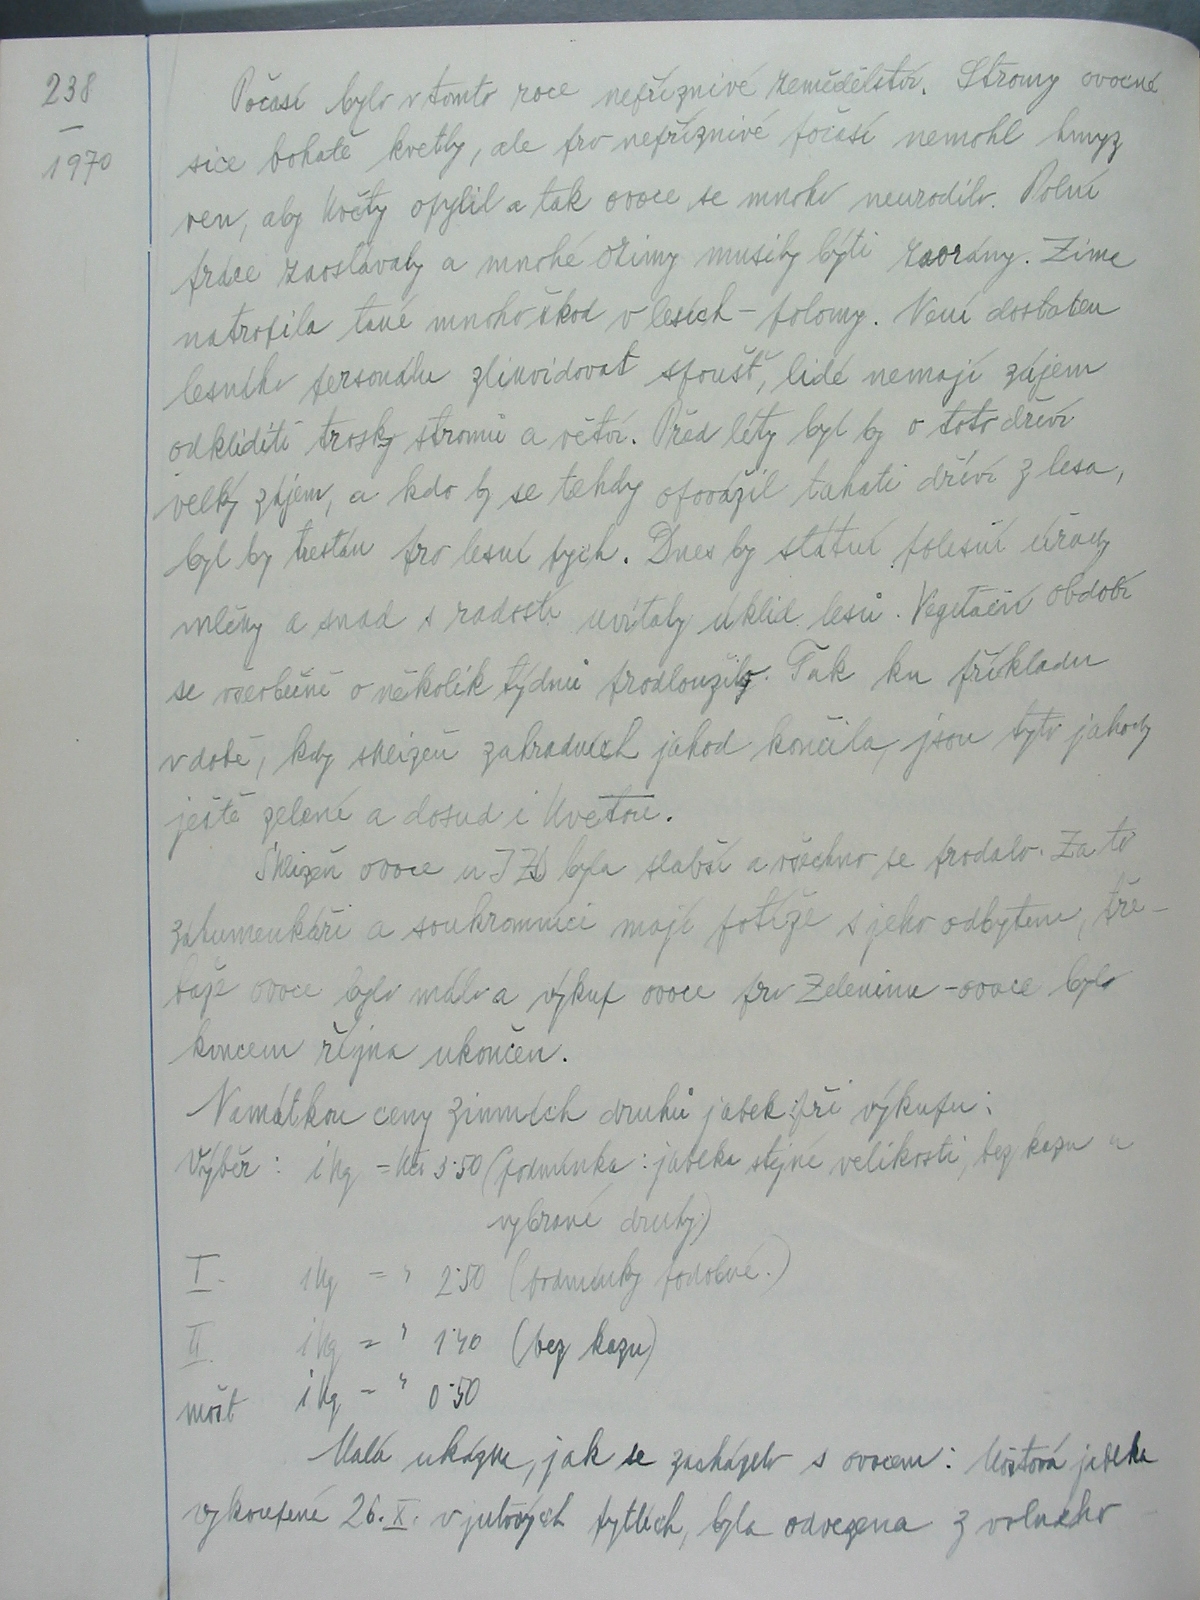 238
—
1970
Počasí bylo v tomto roce nepříznivé zemědělství. Stromy ovocné
sice bohatě kvetly, ale pro nepříznivé počasí nemohl hmyz
ven, aby květy opylil a tak ovoce se mnoho neurodilo. Polní
práce zaostávaly a mnohé ozimy musily býti zaorány. Zima
natropila také mnoho škod v lesích – polomy. Není dostatek
lesního personálu zlikvidovat spoušť, lidé nemají zájem
odkliditi trosky stromů a větví. Před léty byl by o toto dříví
velký zájem, a kdo by se tehdy opovážil tahati dříví z lesa,
byl by trestán pro lesní pych. Dnes by státní polesní úřady
mlčky a snad s radostí uvítaly úklid lesů. Vegetační období
se všeobecně o několik týdnů prodloužilo. Tak ku příkladu
v době, kdy sklizeň zahradních jahod končila, jsou tyto jahody
ještě zelené a dosud i kvetou.
Sklizeň ovoce u JZD byla slabší a všechno se prodalo. Za to
záhumenkáři a soukromníci mají potíže s jeho odbytem, tře-
baže ovoce bylo málo a výkup ovoce pro Zeleninu – ovoce bylo
koncem října ukončen.
Namátkou ceny zimních druhů jablek při výkupu:
Výběr: 1 kg = Kčs 3·50 (podmínka: jablka stejné velikosti, bez kazu a
vybrané druhy.)
I. 1 kg = " 2·50 (podmínky podobné.)
II. 1 kg = " 1·40 (bez kazu)
mošt 1 kg = " 0·50
Malá ukázka, jak se zacházelo s ovocem: Moštová jablka
vykoupené 26. X. v jutových pytlích, byla odvezena z volného